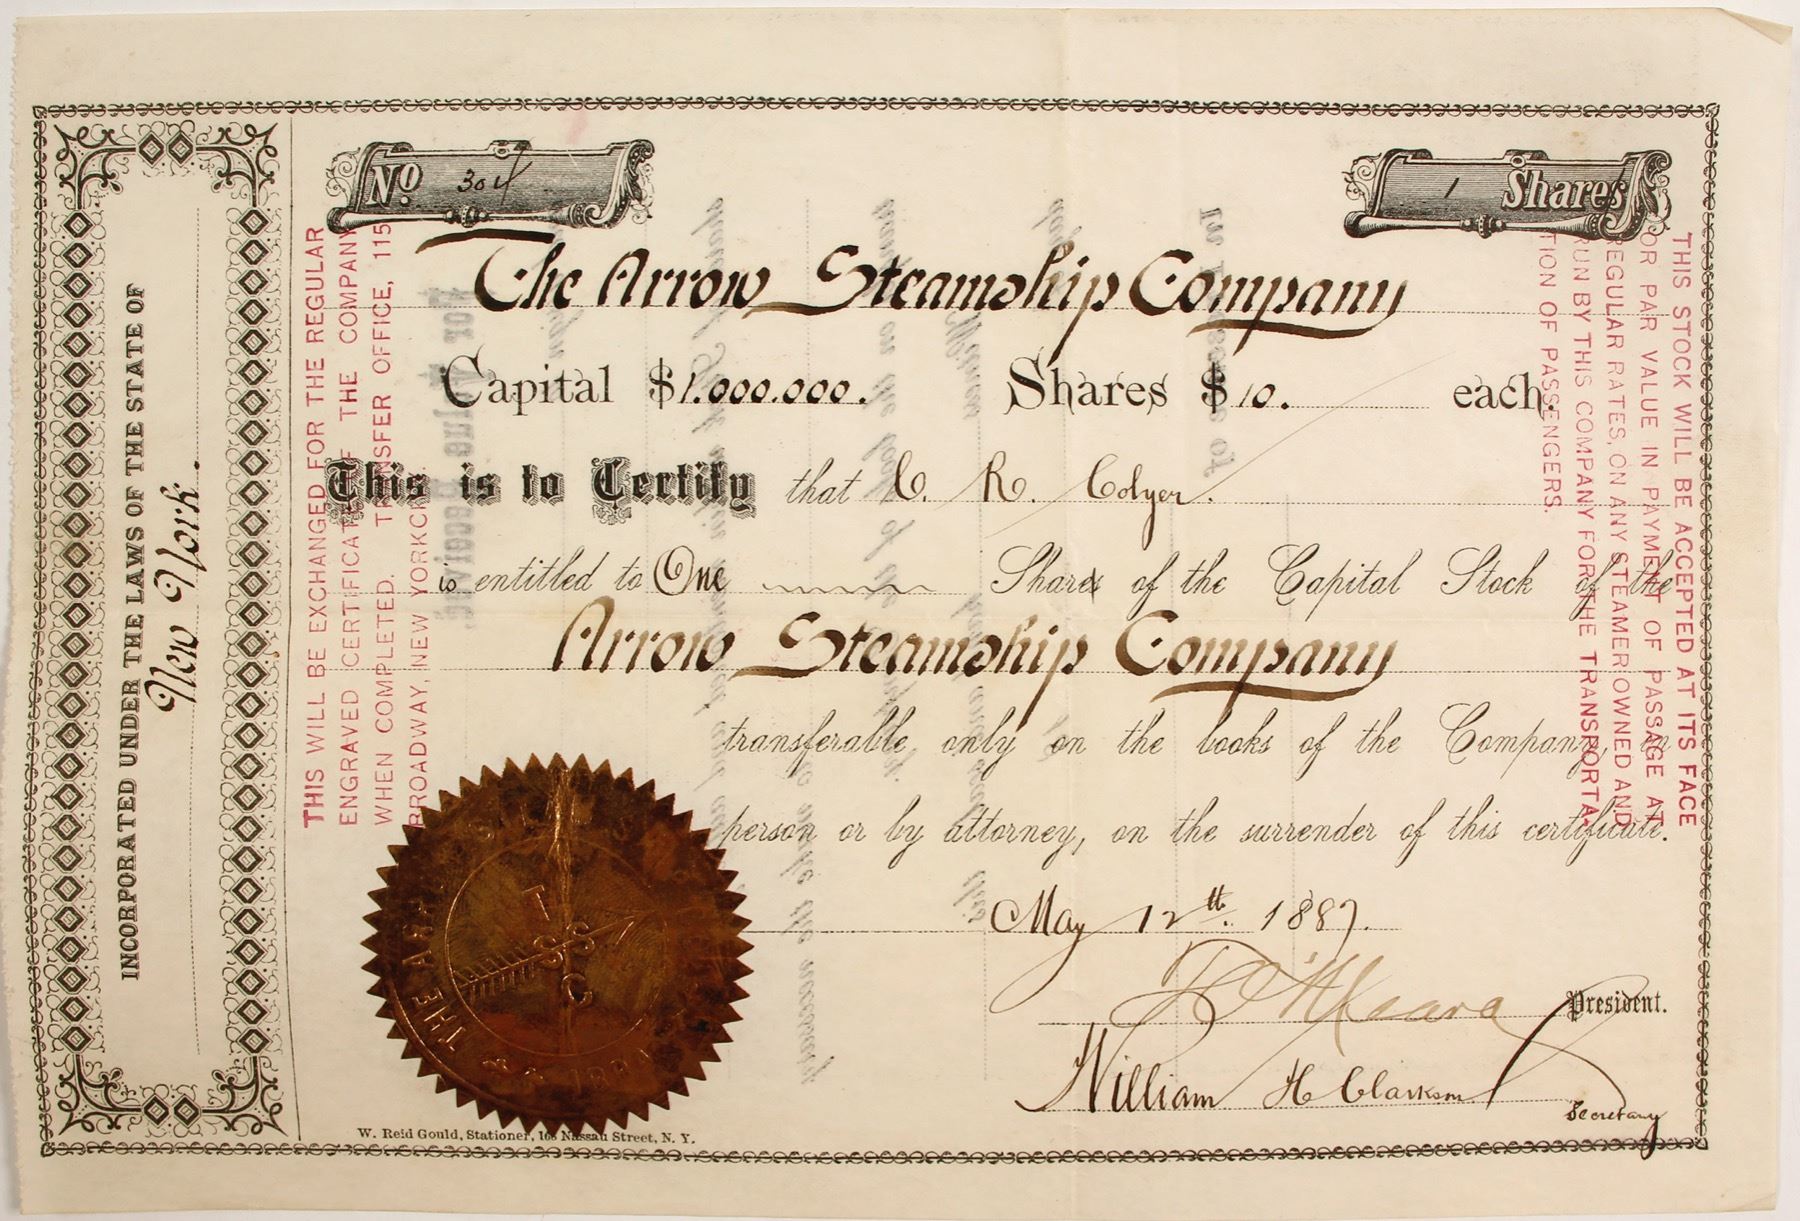 No. 304
1 Shares
The Arrow Steamship Company
Capital $1.000.000. Shares $10. each.
This is to Certify that C. R. Colyer.
is entitled to One Share of the Capital Stock of the
Arrow Steamship Company
transferable only on the books of the Company, in
person or by attorney, on the surrender of this certificate.
May 12th. 1887.
President.
William H Clarkson
Secretary
W. Reid Gould, Stationer, Nassau Street, N. Y.
INCORPORATED UNDER THE LAWS OF THE STATE OF
New York.
THIS WILL BE EXCHANGED FOR THE REGULAR
ENGRAVED CERTIFICATE OF THE COMPANY
WHEN COMPLETED. TRANSFER OFFICE, 115
BROADWAY, NEW YORK
THIS STOCK WILL BE ACCEPTED AT ITS FACE
OR PAR VALUE IN PAYMENT OF PASSAGE AT
REGULAR RATES, ON ANY STEAMER OWNED AND
RUN BY THIS COMPANY FOR THE TRANSPORTA-
TION OF PASSENGERS.
THE
T
S S
C